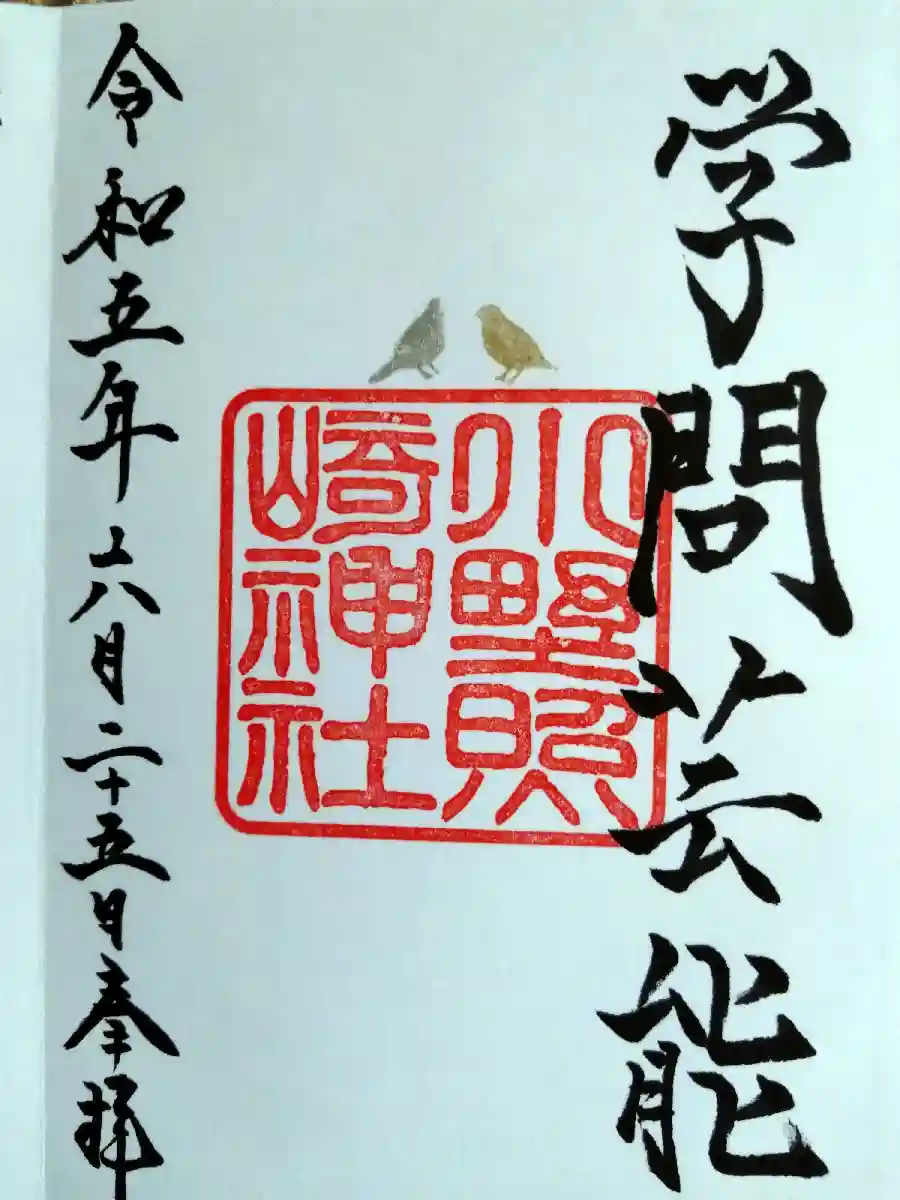 学問芸能
小野照
崎神社
令和五年六月二十五日奉拝